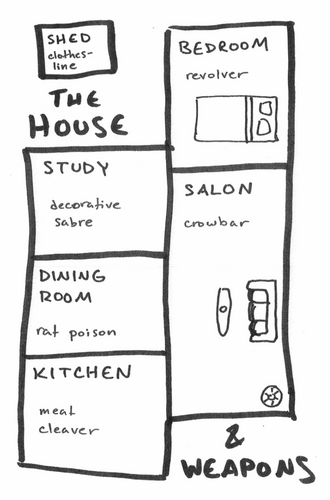 SHED
clothes-
line
THE
HOUSE
BEDROOM
revolver
STUDY
decorative
sabre
SALON
crowbar
DINING
ROOM
rat poison
KITCHEN
meat
cleaver
&
WEAPONS